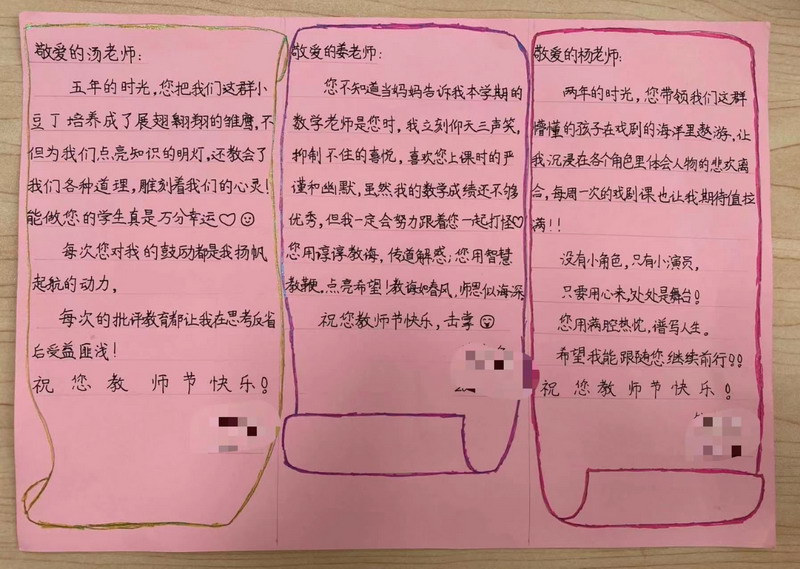 敬爱的汤老师：
五年的时光，您把我们这群小
豆丁培养成了展翅翱翔的雏鹰，不
但为我们点亮知识的明灯，还教会了
我们各种道理，雕刻着我们的心灵！
能做您的学生真是万分幸运♡☺
每次您对我的鼓励都是我扬帆
起航的动力，
每次的批评教育都让我在思考反省
后受益匪浅！
祝您教师节快乐！
敬爱的娄老师：
您不知道当妈妈告诉我本学期的
数学老师是您时，我立刻仰天三声笑，
抑制不住的喜悦，喜欢您上课时的严
谨和幽默，虽然我的数学成绩还不够
优秀，但我一定会努力跟着您一起打怪♡
您用谆谆教诲，传道解惑；您用智慧
教鞭，点亮希望！教诲如春风，师恩似海深
祝您教师节快乐，击掌☺
敬爱的杨老师：
两年的时光，您带领我们这群
懵懂的孩子在戏剧的海洋里遨游，让
我沉浸在各个角色里体会人物的悲欢离
合，每周一次的戏剧课也让我期待值拉
满！！
没有小角色，只有小演员，
只要用心来，处处是舞台！
您用满腔热忱，谱写人生。
希望我能跟随您继续前行！！
祝您教师节快乐！